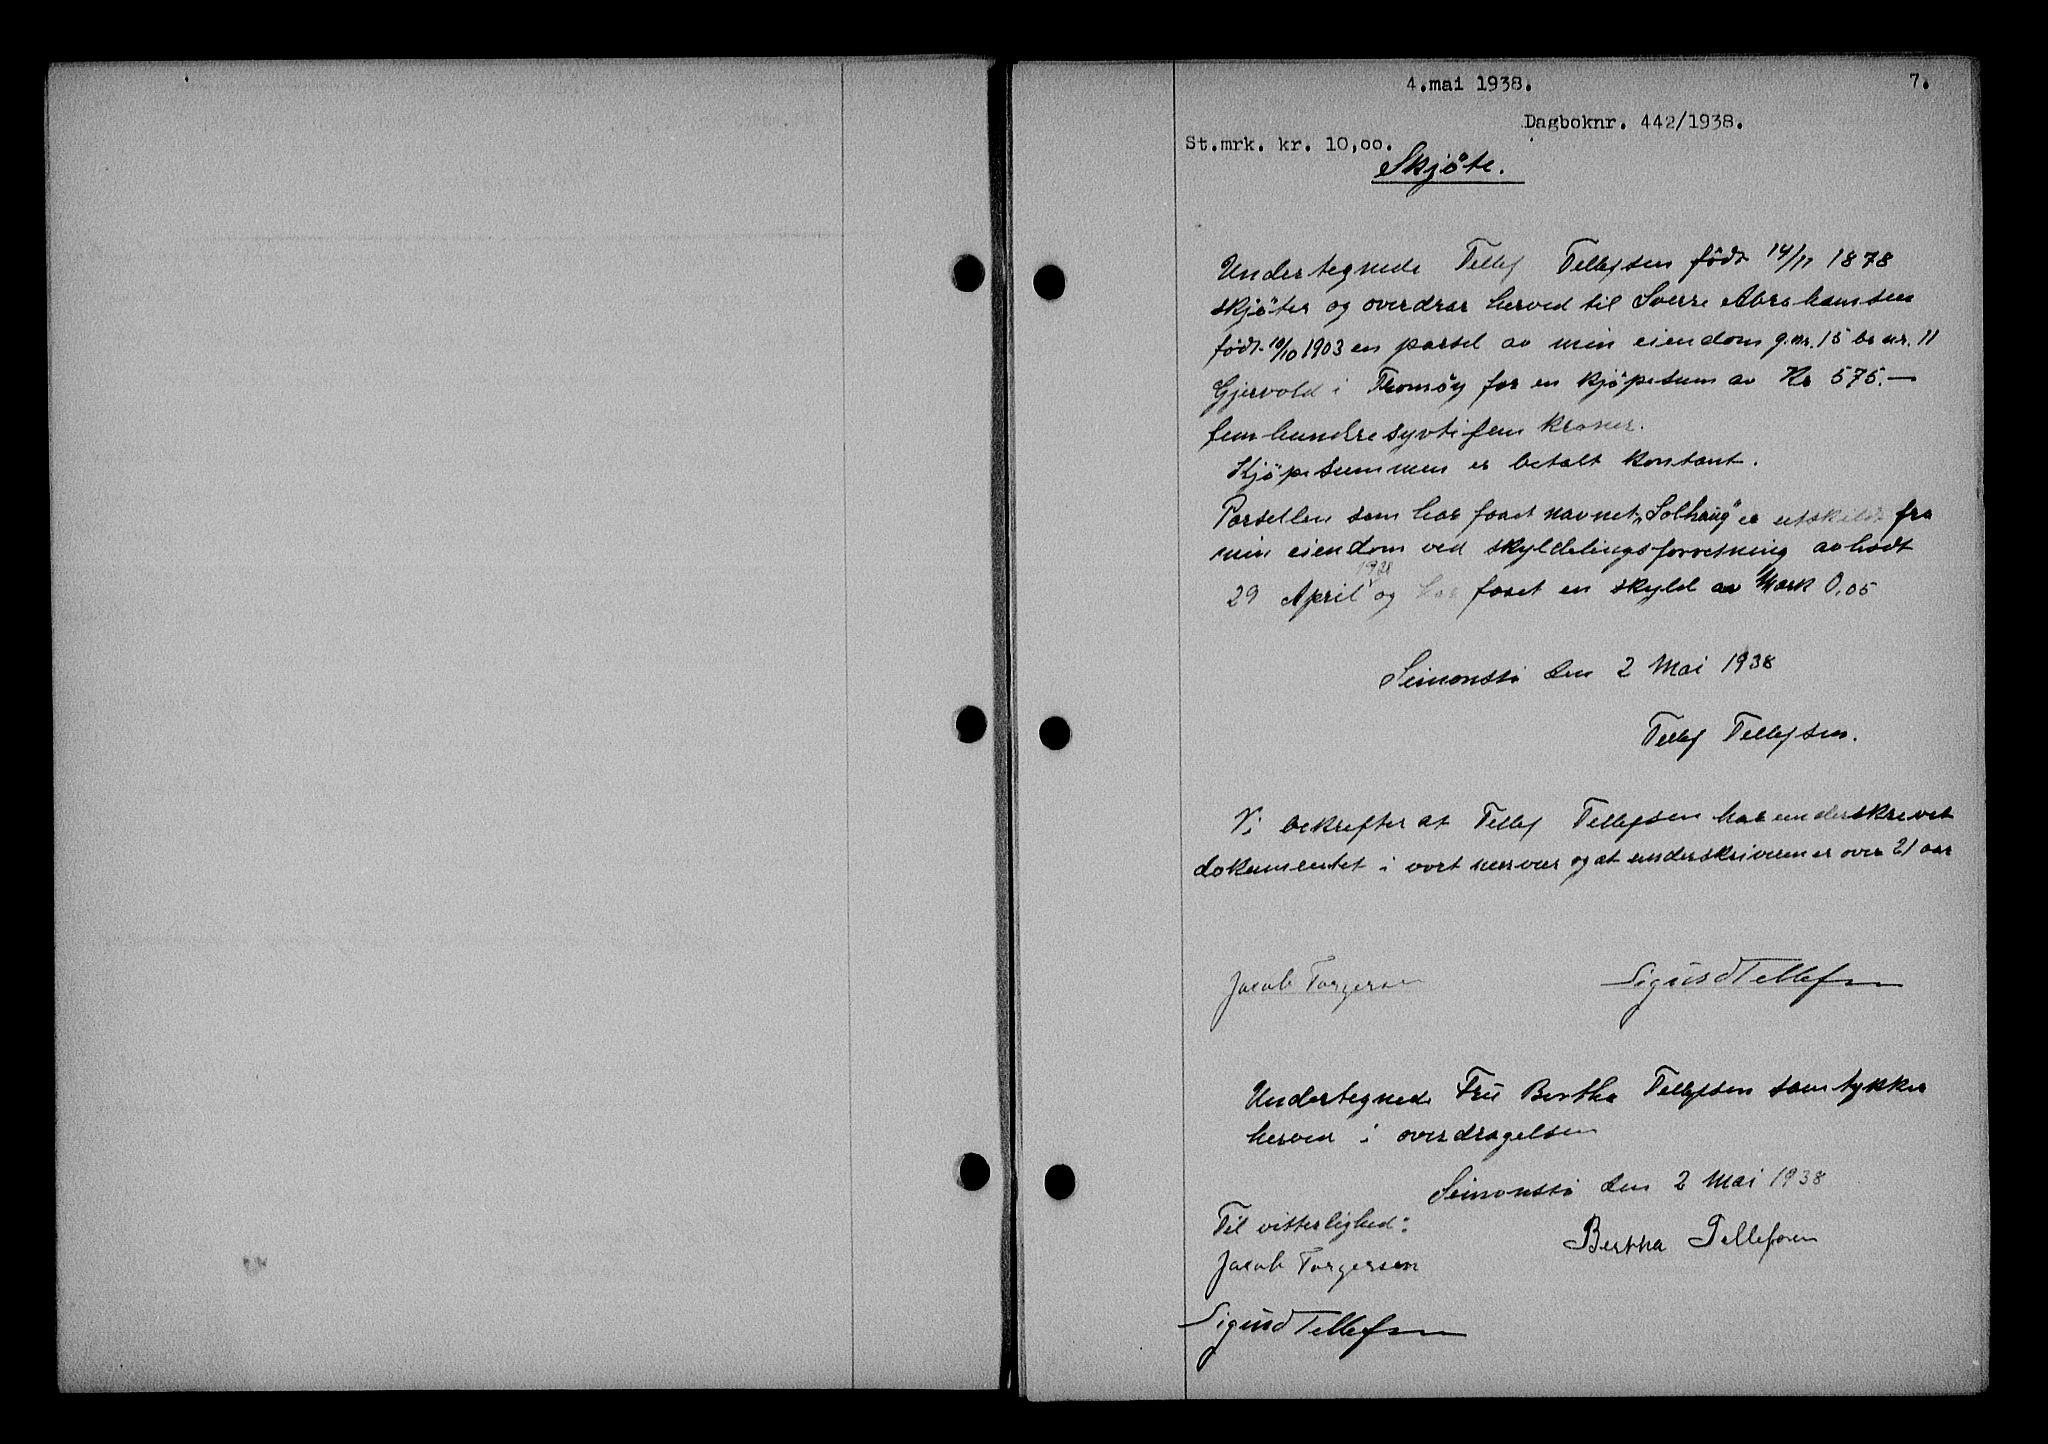 4.mai 1938.
7.
Dagboknr. 442/1938.
St.mrk. kr. 10,00.
Skjöte.
Undertegnede Tellef Tellefsen född 14/11 1878
skjöter og overdrar herved til Sverre Abrahamsen
födt 10/10 1903 en parsel av min eiendom g.nr. 15 br nr. 11
Gjervold i Tromöy for en kjöpesum av Kr 575.—
fem hundre syvti fem kroner.
Kjöpesummen er betalt kontant.
Parsellen som har faaet navnet „Solhaug" er utskilt fra
min eiendom ved skyldelingsforretning avholdt
1938
29 April og har faaet en skyld av Mark 0,05
den 2 Mai 1938
Tellef Tellefsen.
Vi bekrefter at Tellef Tellefsen har underskrevet
dokumentet i vort nærvær og at underskriveren er over 21 aar
Jacob Torgersen
Sigurd Tellefsen
Undertegnede Fru Bertha Tellefsen samtykker
herved i overdragelsen
den 2 Mai 1938
Til vitterlighed:
Bertha Tellefsen
Jacob Torgersen
Sigurd Tellefsen